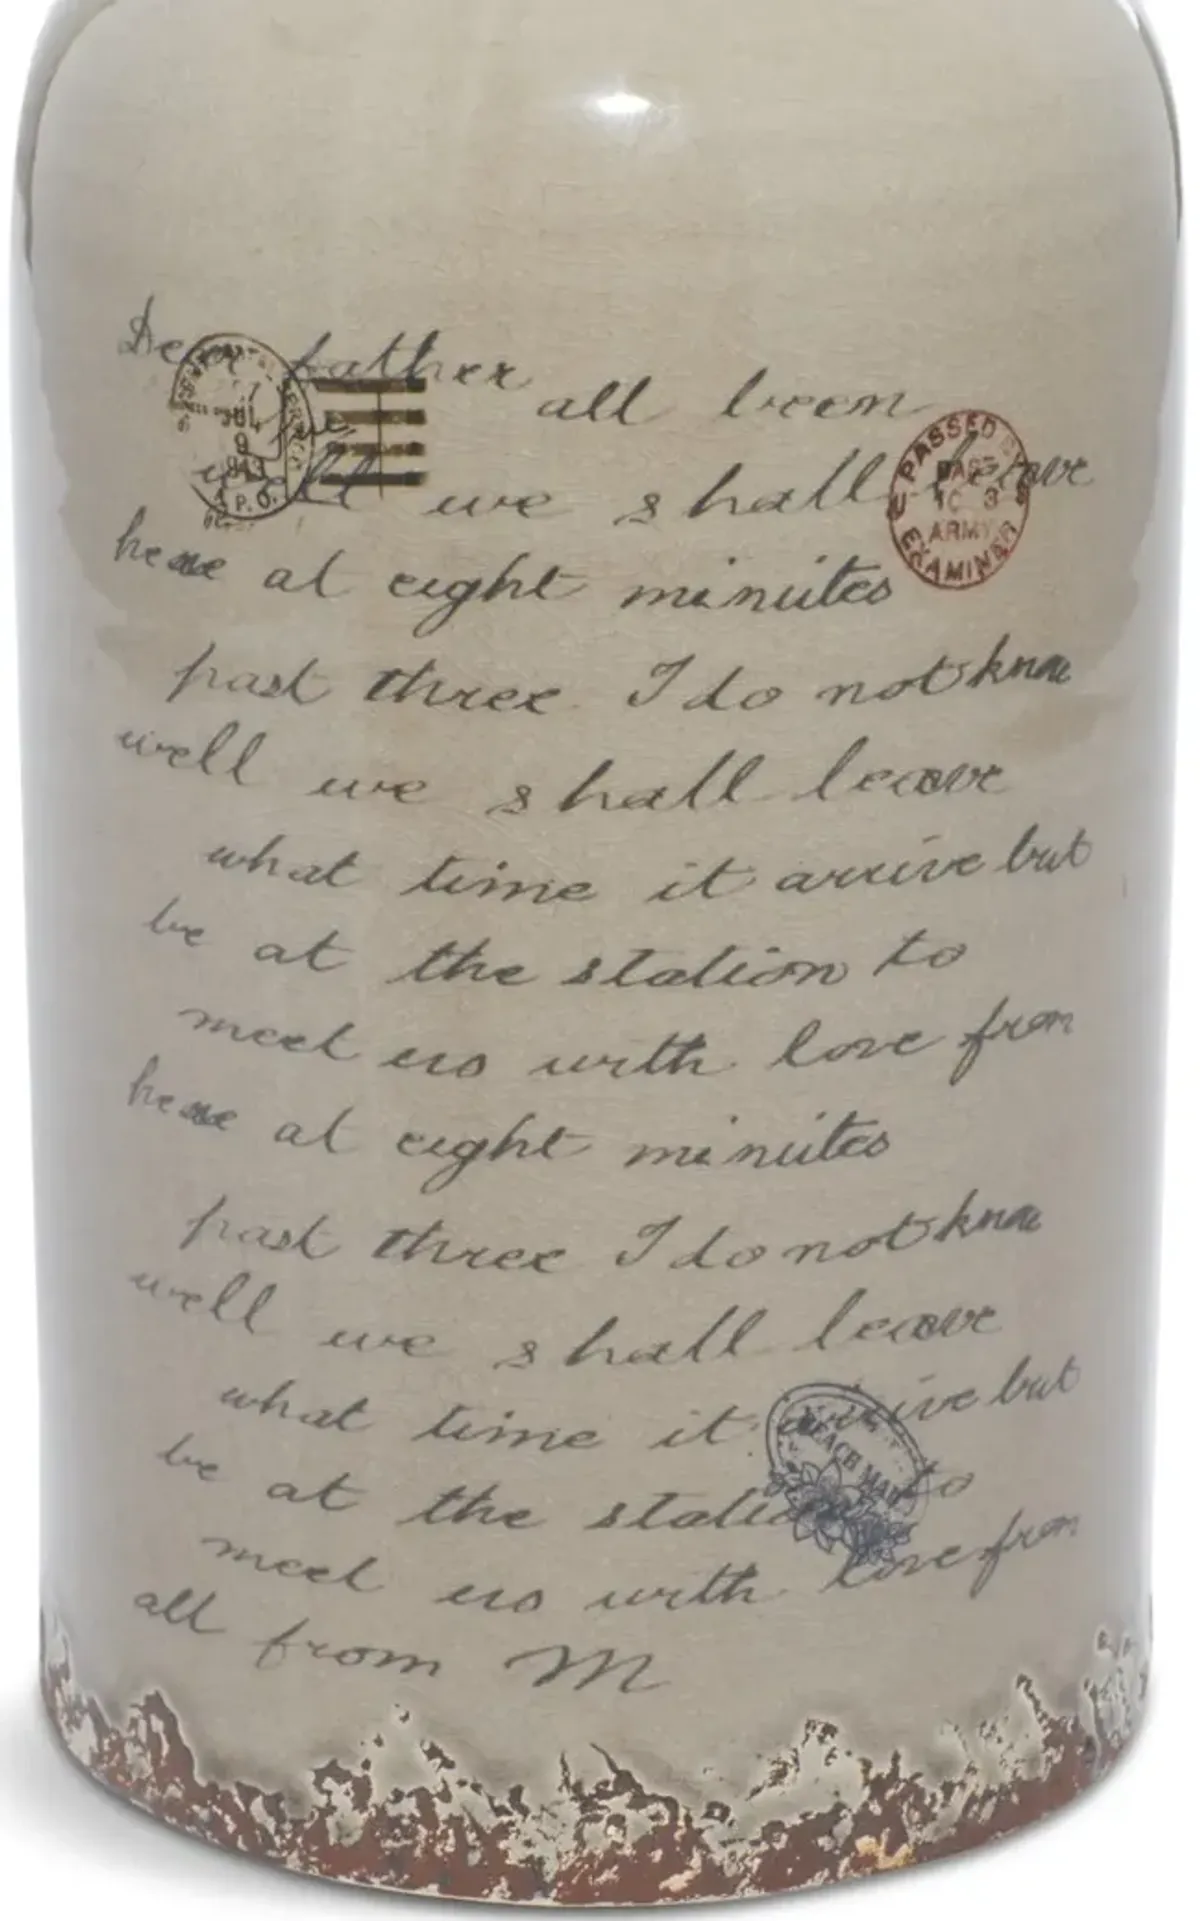 Dear father
all been
well we shall leave
here at eight minutes
past three I do not know
well we shall leave
what time it arrive but
be at the station to
meet us with love from
here at eight minutes
past three I do not know
well we shall leave
what time it arrive but
be at the station to
meet us with love from
all from M
JUL
9
1943
A.P.O.
PASSED BY
BASE
10 3
ARMY
EXAMINER
BEACH